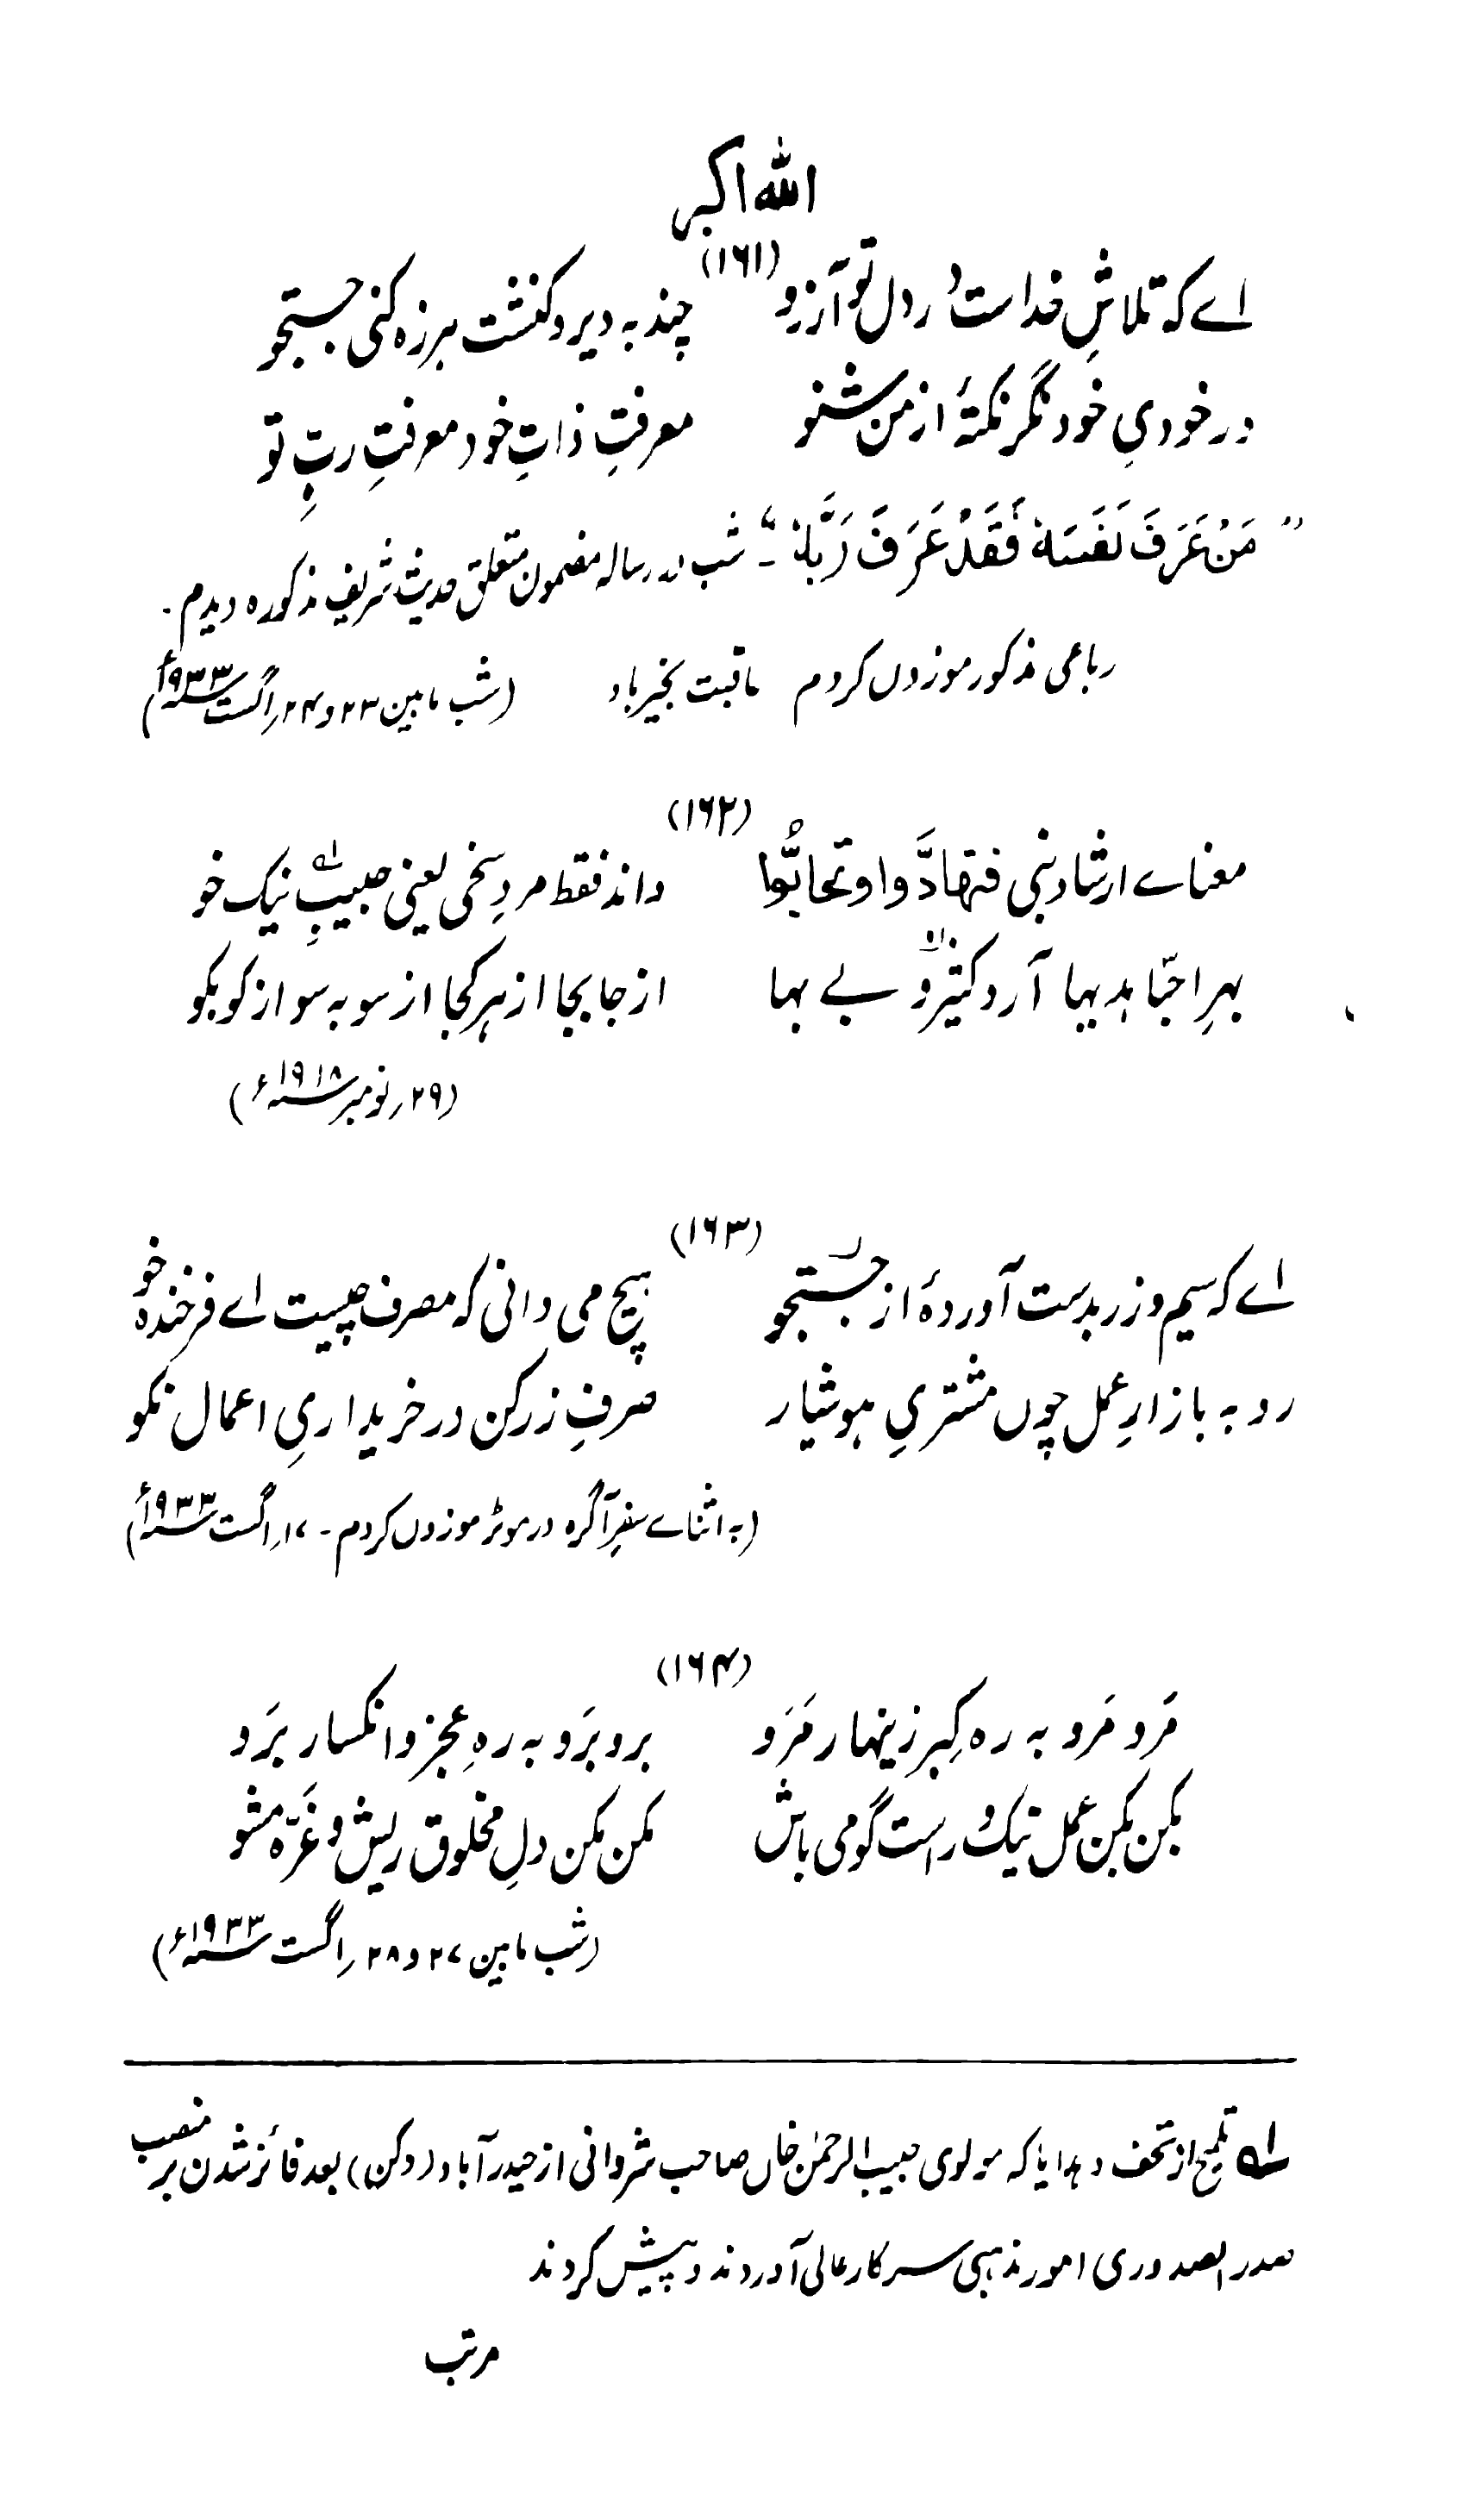 اللہ اکبر
(۱۶۱)
اے کہ تلاشِ خداست در دل تو آرزو چند بہ دیر و کنشت ہرزہ کنی جستجو
در خودیِ خود نگر نکتۂ از من شنو معرفتِ ذاتِ خود معرفتِ ربِّ تو
"مَنْ عَرَفَ نَفْسَهٗ فَقَدْ عَرَفَ رَبَّهٗ"۔ شب در رسالہ مضمون متعلق حدیث شریف مذکورہ دیدم۔
رباعی مذکور موزوں کردم عاقبت بخیر باد (شب مابین ۲۳ و ۲۴ اگست ۱۹۳۳ء)
(۱۶۲)
معناے ارشاد نبی فتهادَّوا و تحابُّوا داند فقط مردِ سخی یعنی حبیبِؔ نیک خو
بہرِ احبّا ہدیہا آرد کثیر و بے بہا از جا بجا از ہر کجا از سو بہ سو از کو بکو
(۲۹ نومبر ۱۹۱۸ء)
(۱۶۳)
اے کہ سیم و زر بدست آوردۂ از جستجو ہیچ می دانی کہ مصرف چیست اے فرخندہ خو
رو بہ بازارِ عمل چوں مشتریِ ہوشیار صرفِ زر کن در خریداریِ اعمال نکو
(بہ اثناے سفرِ آگرہ در موٹر موزوں کردم۔ ۱۷ اگست ۱۹۳۳ء)
(۱۶۴)
مَرو مَرو بہ رہ کِبر زینہار مَرَو برو بَرَو بہ رہِ عجز و انکسار بَرَو
بکن بکن عمل نیک و راست گوی باش مکن مکن دلِ مخلوق ریش و غرّہ مشو
(شب مابین ۲۷ و ۲۸ اگست ۱۹۳۳ء)
۱؎ تلمیح از تحف و ہدایا کہ مولوی حبیب الرحمٰن خاں صاحب شروانی از حیدرآباد (دکن) بعد فائز شدن بر منصب
صدر الصدوری امور مذہبی سرکار عالی آوردند و پیش کردند
مرتب